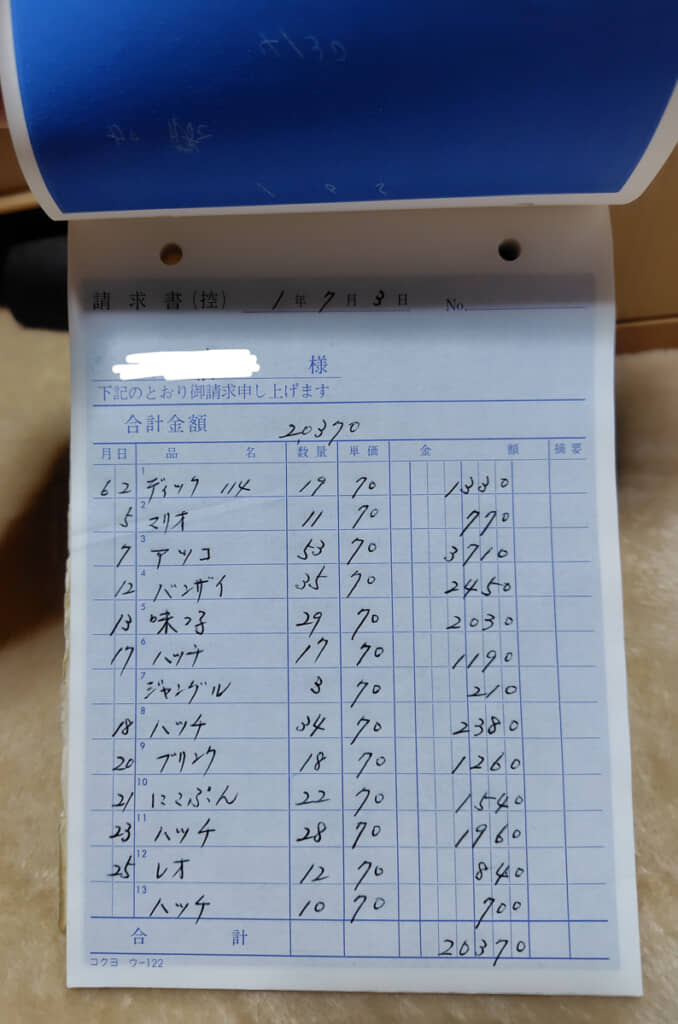 請求書(控) 1年7月3日 No.
様
下記のとおり御請求申し上げます
合計金額 20370
月日 品名 数量 単価 金額 摘要
6 2 1 ディック 114 19 70 1330
5 2 マリオ 11 70 770
7 3 アツコ 53 70 3710
12 4 バンザイ 35 70 2450
13 5 味っ子 29 70 2030
17 6 ハッチ 17 70 1190
7 ジャングル 3 70 210
18 8 ハッチ 34 70 2380
20 9 ブリンク 18 70 1260
21 10 にこぷん 22 70 1540
23 11 ハッチ 28 70 1960
25 12 レオ 12 70 840
13 ハッチ 10 70 700
合計 20370
コクヨ ウ-122